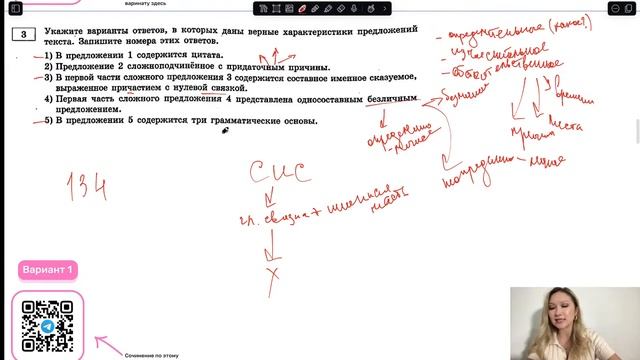 варианту здесь
3 Укажите варианты ответов, в которых даны верные характеристики предложений
текста. Запишите номера этих ответов.
1) В предложении 1 содержится цитата.
2) Предложение 2 сложноподчинённое с придаточным причины.
3) В первой части сложного предложения 3 содержится составное именное сказуемое,
выраженное причастием с нулевой связкой.
4) Первая часть сложного предложения 4 представлена односоставным безличным
предложением.
5) В предложении 5 содержится три грамматические основы.
- определительное (какое?)
- изъяснительное
времени
места
причин
134
СИС
гл. связка + именная
часть
Х
Вариант 1
Сочинение по этому